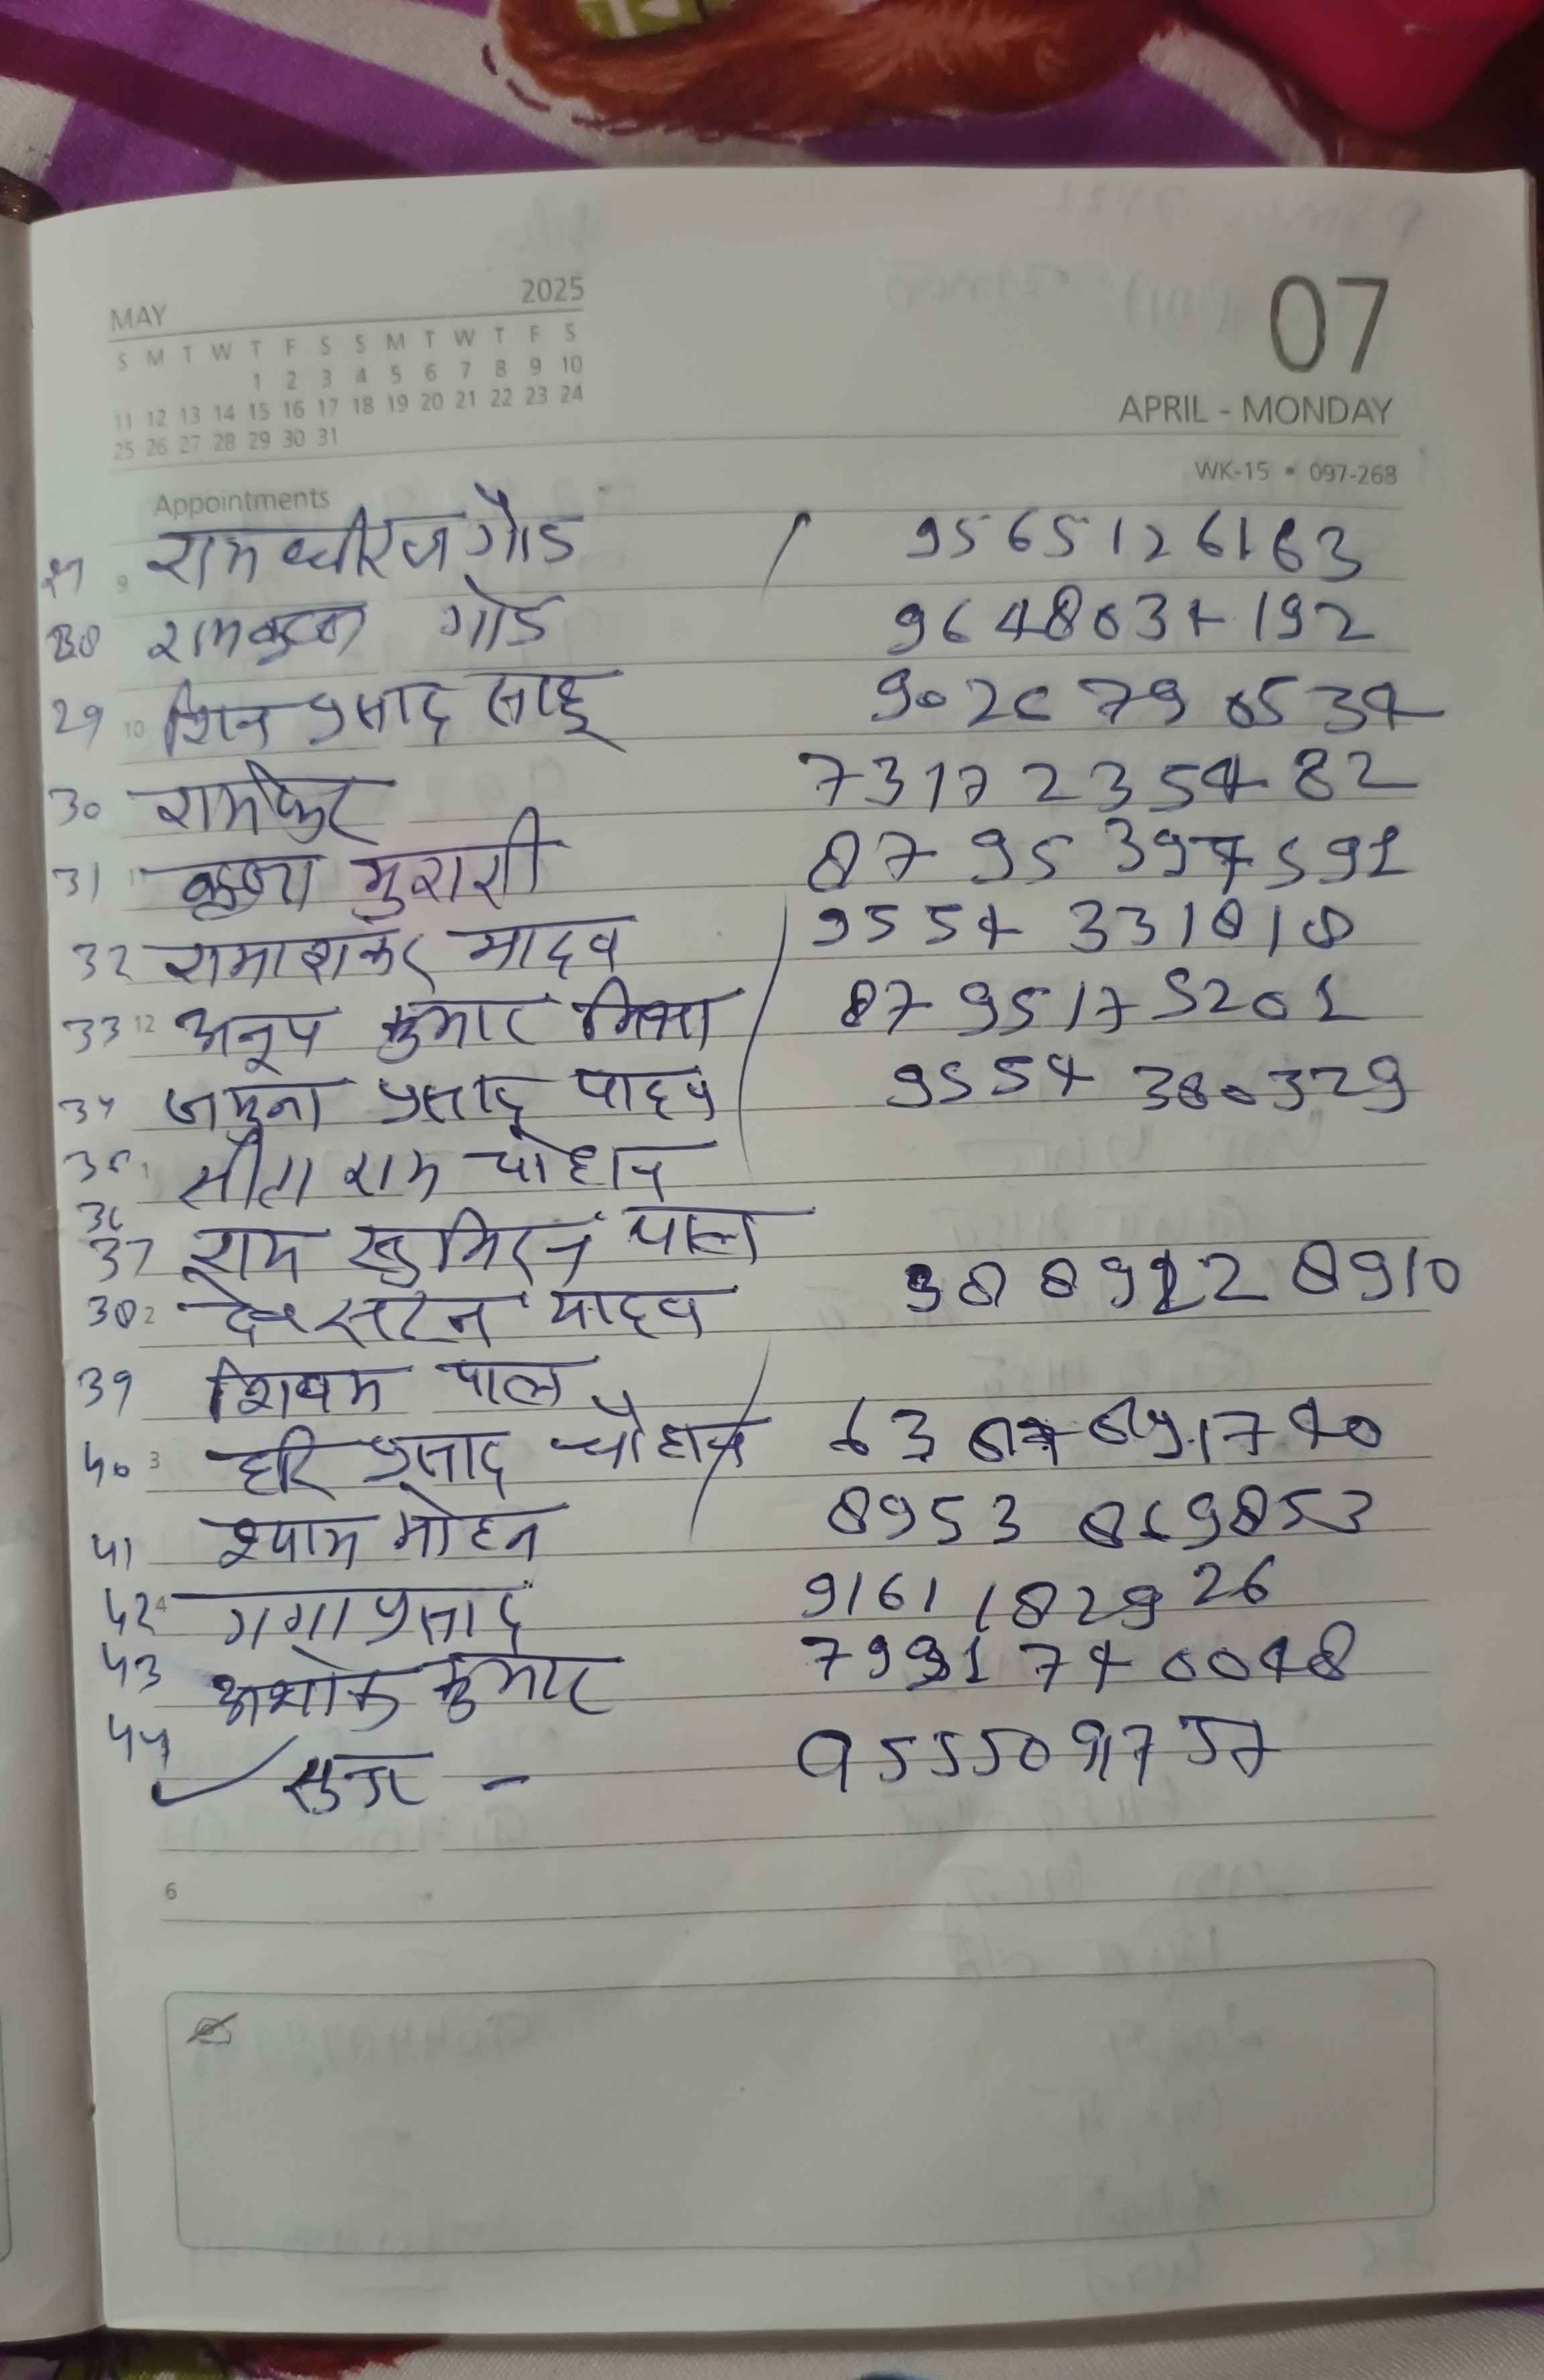 MAY 2025
S M T W T F S S M T W T F S
1 2 3 4 5 6 7 8 9 10
11 12 13 14 15 16 17 18 19 20 21 22 23 24
25 26 27 28 29 30 31
07
APRIL - MONDAY
WK-15 • 097-268
Appointments
9 राम धीरज गौड 9565126163
28 रामकृष्ण गोड 9648034192
29 10 शिव प्रसाद साहू 9026790534
30 रामफेर 7317235482
31 11 कृष्णा मुरारी 8795397591
32 रामाशंकर यादव 9554331818
33 12 अनूप कुमार मिश्रा 8795175201
34 जमुना प्रसाद यादव 9554380329
35 1 सीता राम चौहान
36
37 राम सुमिरन पाल
38 2 यादव 8910
39 शिवम पाल
40 3 हरि प्रसाद चौहान
41 श्याम मोहन 8953869853
42 4 गंगा प्रसाद 9161182926
43 अशोक कुमार 7991740048
44 9555091757
6